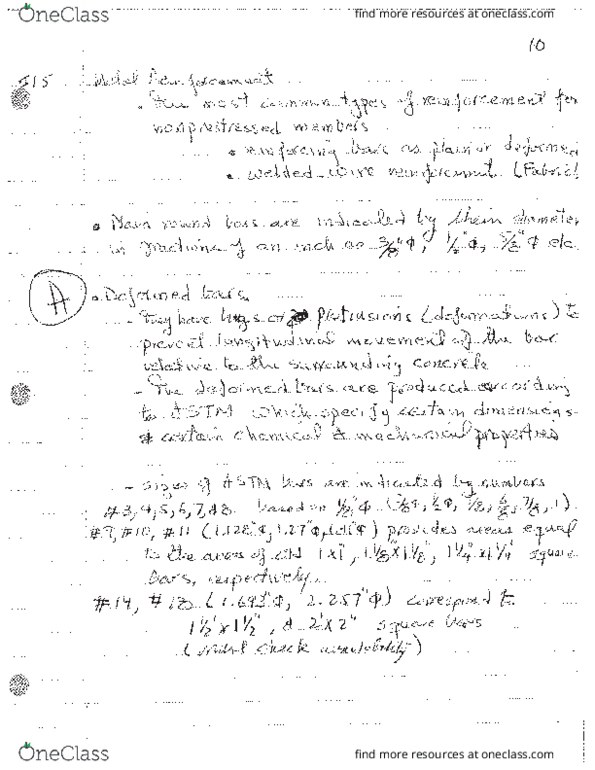 OneClass
find more resources at oneclass.com
10
Metal Reinforcement
• The most common types of reinforcement for
nonprestressed members
• reinforcing bars as plain or deformed
• welded wire reinforcement (Fabric)
• Main round bars are indicated by their diameter
in fractions of an inch as 3/8"Φ, 1/2"Φ, 5/8"Φ etc.
A
• Deformed bars
- They have lugs or protrusions (deformations) to
prevent longitudinal movement of the bar
relative to the surrounding concrete
- The deformed bars are produced according
to ASTM which specify certain dimensions
& certain chemical & mechanical properties
- sizes of ASTM bars are indicated by numbers
#3,4,5,6,7,&8 based on 1/8"Φ
#9, #10, #11 (1.128"Φ, 1.27"Φ, 1.41"Φ) provides areas equal
to the areas of old 1x1", 1 1/8"x1 1/8", 1 1/4"x1 1/4" square
bars, respectively
#14, #18 (1.693"Φ, 2.257"Φ) correspond to
1 1/2"x1 1/2", & 2"x2" square bars
(check availability)
OneClass
find more resources at oneclass.com